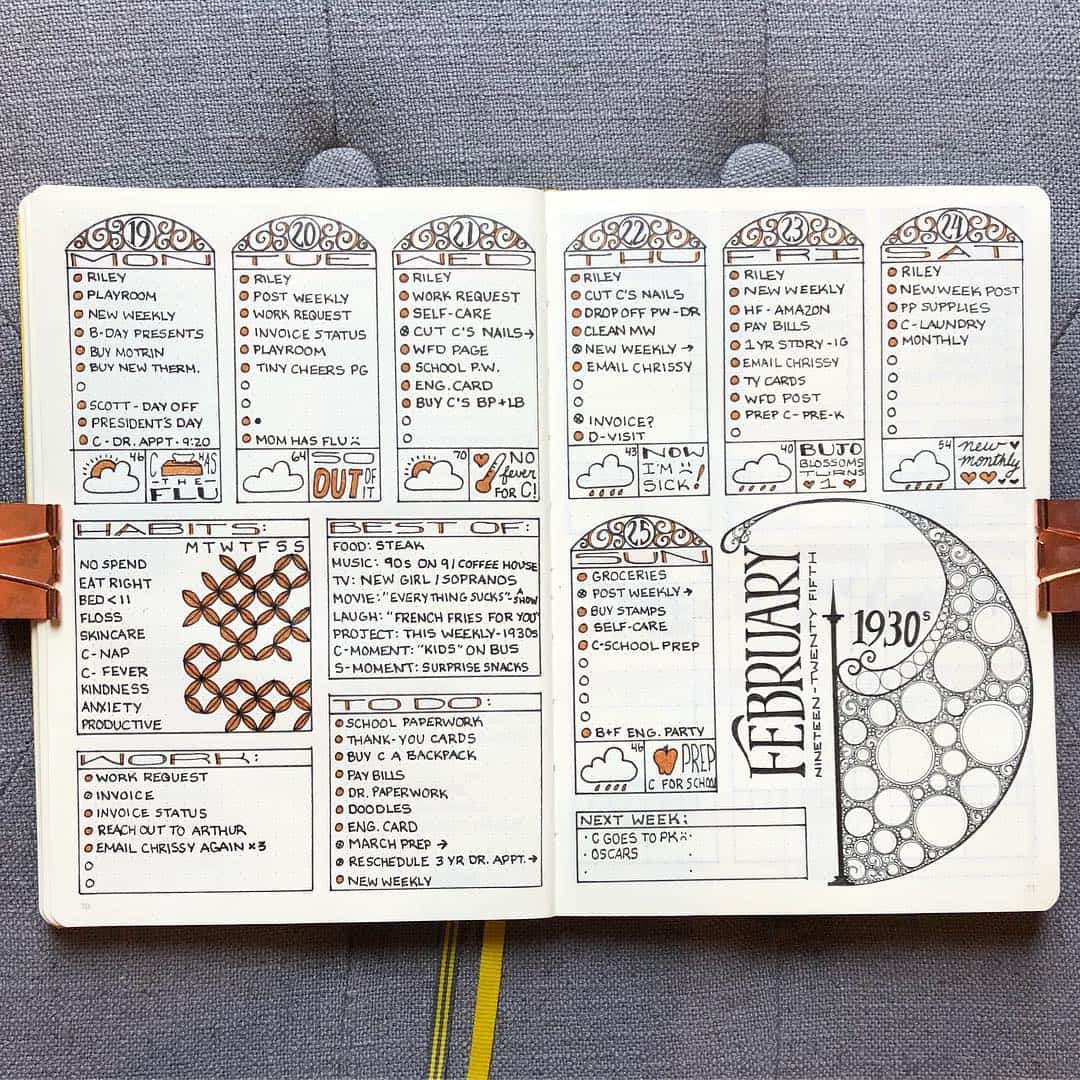 19
MON
RILEY
PLAYROOM
NEW WEEKLY
B-DAY PRESENTS
BUY MOTRIN
BUY NEW THERM.
SCOTT - DAY OFF
PRESIDENT'S DAY
C - DR. APPT - 9:20
46
C HAS
THE
FLU
20
TUE
RILEY
POST WEEKLY
WORK REQUEST
INVOICE STATUS
PLAYROOM
TINY CHEERS PG
MOM HAS FLU
64
SO
OUT OF
IT
21
WED
RILEY
WORK REQUEST
SELF-CARE
CUT C'S NAILS→
WFD PAGE
SCHOOL P.W.
ENG. CARD
BUY C'S BP + LB
70
NO
fever
FOR C!
22
THU
RILEY
CUT C'S NAILS
DROP OFF PW-DR
CLEAN MW
NEW WEEKLY →
EMAIL CHRISSY
INVOICE?
D-VISIT
43
NOW
I'M
SICK!
23
FRI
RILEY
NEW WEEKLY
HF - AMAZON
PAY BILLS
1 YR STORY - IG
EMAIL CHRISSY
TY CARDS
WFD POST
PREP C - PRE-K
40
BUJO
BLOSSOMS
TURNS
1
24
SAT
RILEY
NEW WEEK POST
PP SUPPLIES
C - LAUNDRY
MONTHLY
54
new
monthly
HABITS:
M T W T F S S
NO SPEND
EAT RIGHT
BED < 11
FLOSS
SKINCARE
C - NAP
C - FEVER
KINDNESS
ANXIETY
PRODUCTIVE
BEST OF:
FOOD: STEAK
MUSIC: 90S ON 9 / COFFEE HOUSE
TV: NEW GIRL / SOPRANOS
MOVIE: "EVERYTHING SUCKS" - A SHOW
LAUGH: "FRENCH FRIES FOR YOU"
PROJECT: THIS WEEKLY - 1930s
C-MOMENT: "KIDS" ON BUS
S-MOMENT: SURPRISE SNACKS
WORK:
WORK REQUEST
INVOICE
INVOICE STATUS
REACH OUT TO ARTHUR
EMAIL CHRISSY AGAIN x3
TO DO:
SCHOOL PAPERWORK
THANK-YOU CARDS
BUY C A BACKPACK
PAY BILLS
DR. PAPERWORK
DOODLES
ENG. CARD
MARCH PREP →
RESCHEDULE 3 YR DR. APPT. →
NEW WEEKLY
25
SUN
GROCERIES
POST WEEKLY →
BUY STAMPS
SELF-CARE
C-SCHOOL PREP
B+F ENG. PARTY
46
PREP
C FOR SCHOOL
FEBRUARY
NINETEEN - TWENTY FIFTH
1930s
NEXT WEEK:
· C GOES TO PK
· OSCARS